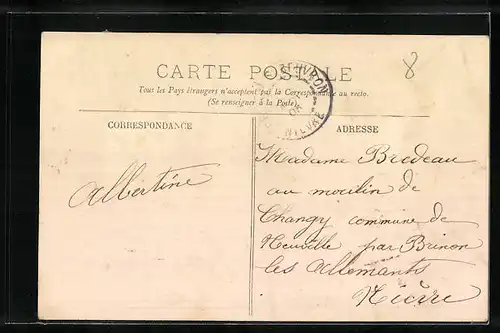 8
CARTE POSTALE
Tous les Pays étrangers n'acceptent pas la Correspondance au recto.
(Se renseigner à la Poste)
NIÈVRE
08
CORRESPONDANCE
ADRESSE
Albertine
Madame Bredeau
au moulin de
Changy commune de
Neuville par Brinon
les Allemants
Nièvre